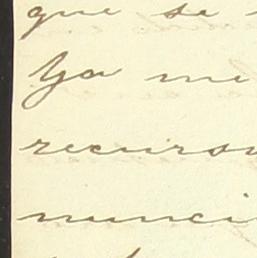 que se
Ya me
recurso
nunci